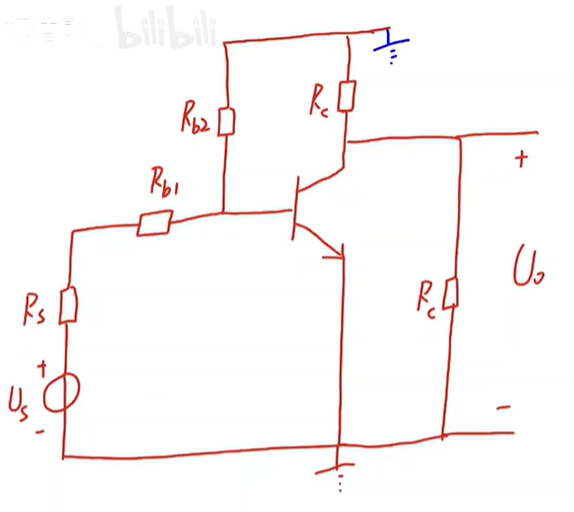 bilibili
R_b2
R_c
R_b1
+
U_o
R_s
R_c
+
U_s
-
-